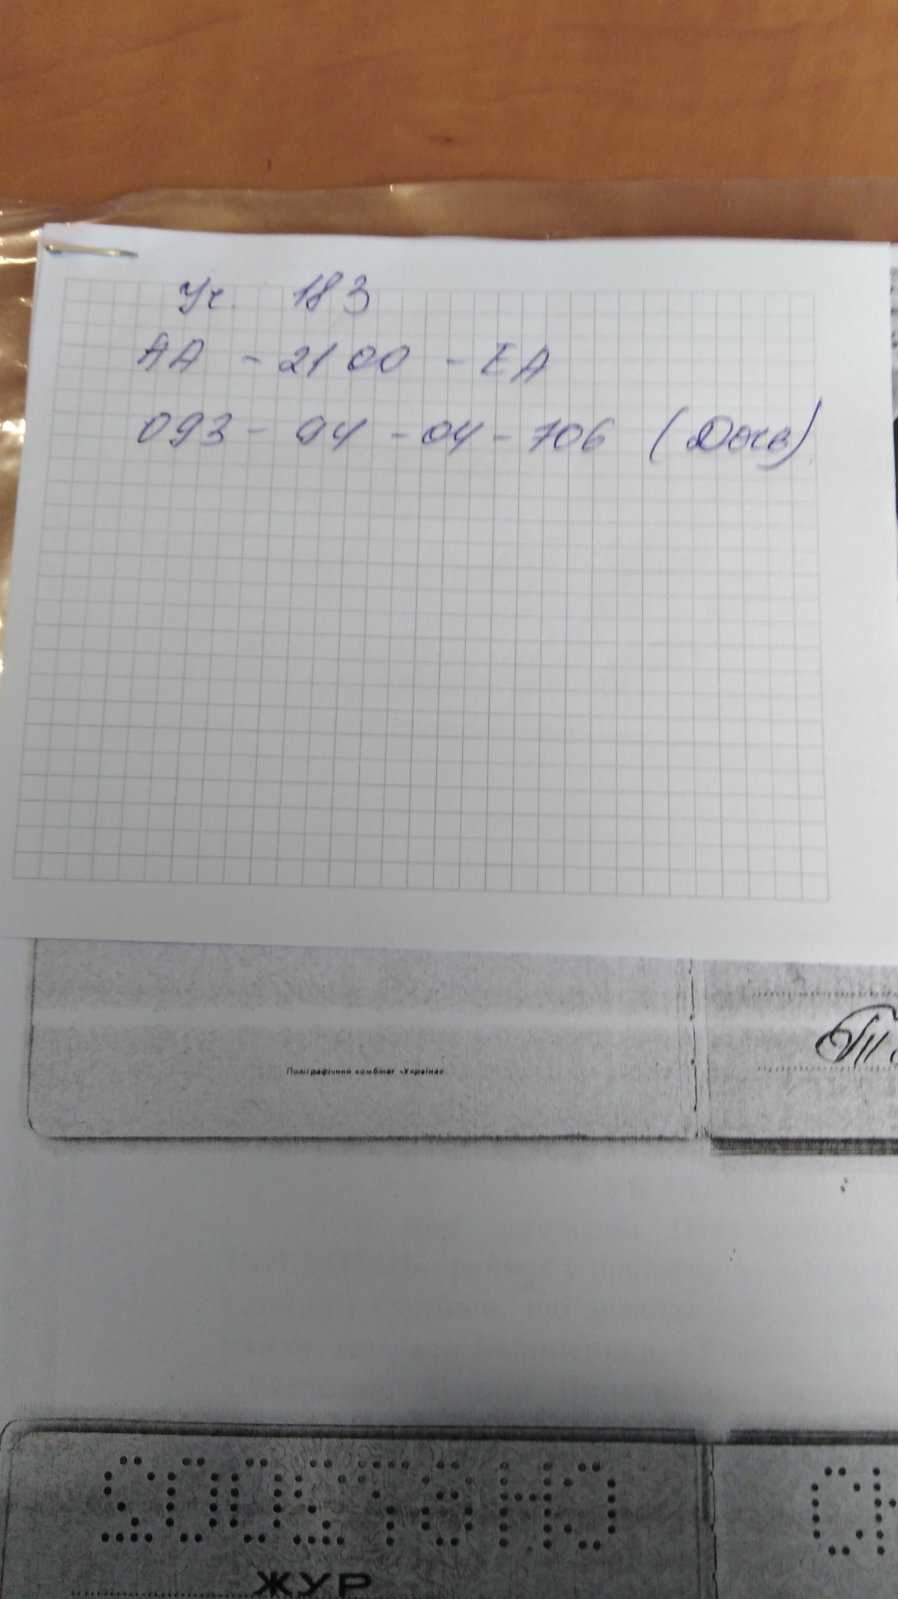 Уч. 183
АА - 2100 - ЕА
093 - 94 - 04 - 706 (Доча)
Поліграфічний комбінат «Україна»
ЖУР